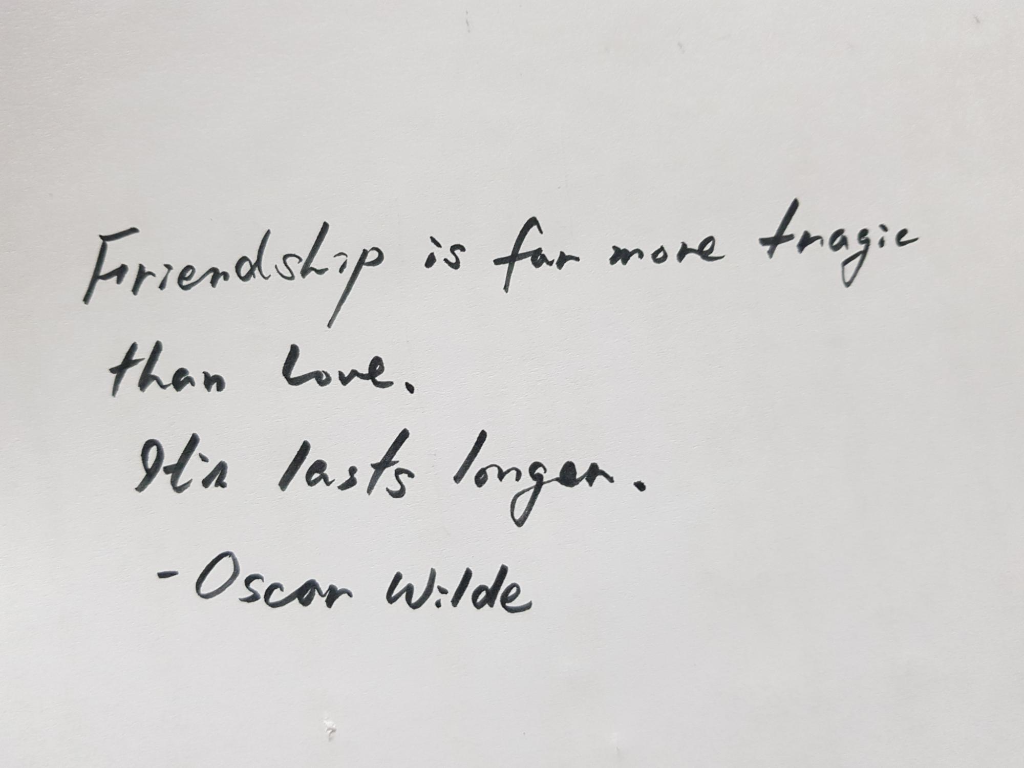 Friendship is far more tragic
than love.
It's lasts longer.
- Oscar Wilde